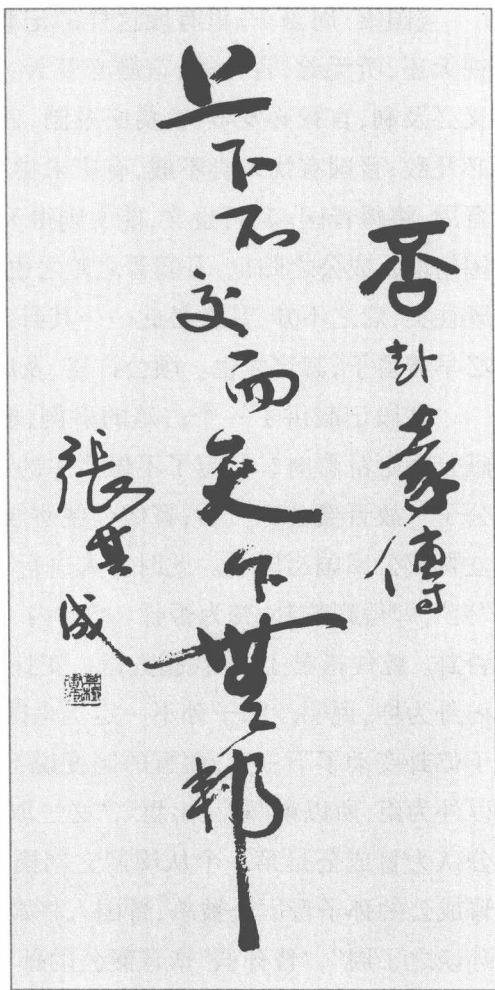 否卦彖傳
上下不交而天下無邦
張其成